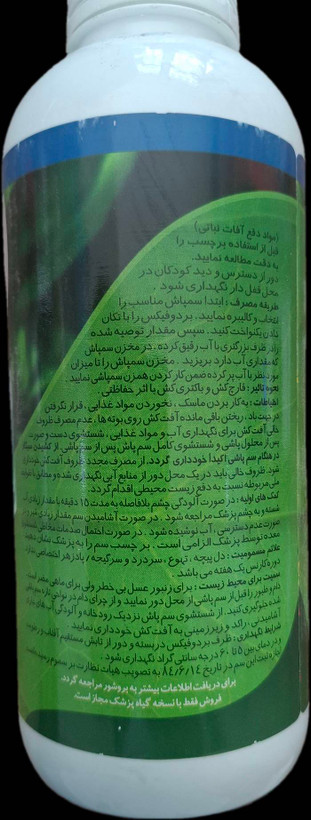 (مواد دفع آفات نباتی)
قبل از استفاده برچسب را
به دقت مطالعه نمایید.
دور از دسترس و دید کودکان در
محل قفل دار نگهداری شود .
طریقه مصرف : ابتدا سمپاش مناسب را
انتخاب و کالیبره نمایید. بردوفیکس را با تکان
دادن یکنواخت کنید . سپس مقدار توصیه شده
را در ظرف بزرگتری با آب رقیق کرده ، در مخزن سمپاش
که مقداری آب دارد بریزید . مخزن سمپاش را تا میزان
مورد نظر با آب پر کرده ضمن کار کردن همزن سمپاشی نمایید
نحوه تاثیر : قارچ کش و باکتری کش با اثر حفاظتی.
احتیاطات : به کار بردن ماسک ، نخوردن مواد غذایی ، قرار نگرفتن
در جهت باد ، ریختن باقی مانده آفت کش روی بوته ها ، عدم مصرف ظروف
خالی آفت کش برای نگهداری آب و مواد غذایی ، شستشوی دست و صورت
پس از محلول پاشی و شستشوی کامل سم پاش پس از سم پاشی. از کشیدن سیگار
در هنگام سم پاشی اکیدا خودداری گردد. از مصرف مجدد ظروف آفت کش خودداری
شود. ظروف خالی باید در یک محل دور از منابع آبی نگهداری شده و مطابق
مربوطه نسبت به دفع زیست محیطی اقدام گردد.
کمک های اولیه : در صورت آلودگی چشم بلافاصله به مدت ۱۵ دقیقه با مقدار زیادی آب
شسته و به چشم پزشک مراجعه شود . در صورت آشامیدن سم مقدار زیادی شیر و در
صورت عدم دسترسی ، آب نوشیده شود . در صورت احتمال صدمات مخاطی شستشوی
معده توسط پزشک الزامی است . بر چسب سم را به پزشک نشان دهید
علائم مسمومیت : دل پیچه ، تهوع ، سردرد و سرگیجه / پادزهر اختصاصی ندارد
دوره کارنس یک هفته می باشد.
نسبت برای محیط زیست : برای زنبور عسل بی خطر ولی برای ماهی مضر است
دام و طیور را قبل از سم پاشی از محل دور نمایید و از چرای دام در نواحی تازه سم پاشی
شده جلوگیری کنید. از شستشوی سم پاش نزدیک رودخانه و آلودگی آب های جاری
آشامیدنی ، راکد و زیرزمینی به آفت کش خودداری نمایید.
شرایط نگهداری : ظرف بردوفیکس در بسته و دور از تابش مستقیم آفتاب و رطوبت
و در دمای بین ۵ تا ۴۰ درجه سانتی گراد نگهداری شود .
ثبت این سم در تاریخ ۸۴/۶/۱۴ به تصویب هیات نظارت بر سموم رسیده است
برای دریافت اطلاعات بیشتر به بروشور مراجعه گردد.
فروش فقط با نسخه گیاه پزشک مجاز است.